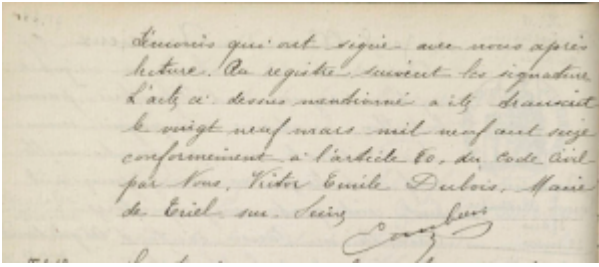 témoins qui ont signé avec nous après
lecture. Au registre suivent les signatures
L'acte ci dessus mentionné a été transcrit
le vingt neuf mars mil neuf cent seize
conformément à l'article 80, du Code Civil
par Nous, Victor Emile Dubois, Maire
de Triel sur Seine